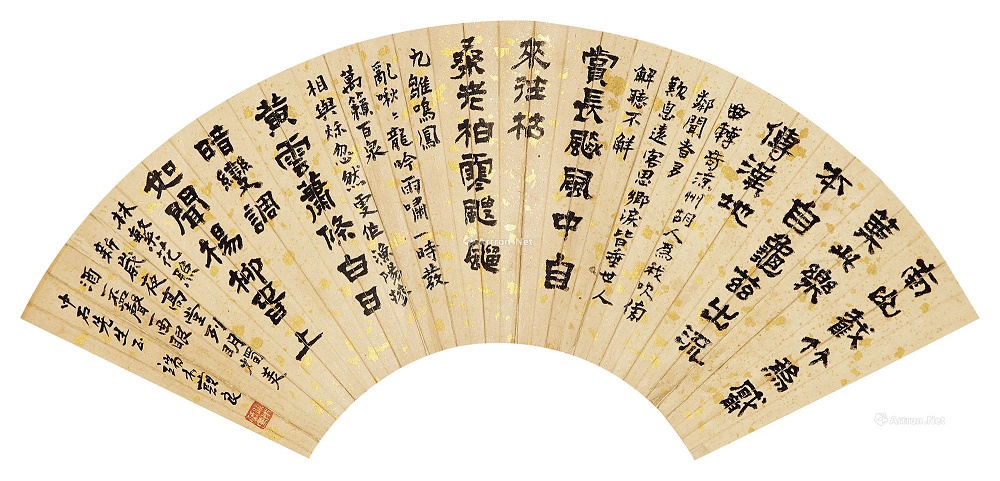 南山截竹為觱
篥此樂
本自龜茲出流
傳漢地
曲轉奇涼州胡人為我吹傍
鄰聞者多
歎息遠客思鄉淚皆垂世人
解聽不解
賞長飈風中自
來往枯
桑老柏寒颼飀
九雛鳴鳳
亂啾〻龍吟雨嘯一時發
萬籟百泉
相與秋忽然更作漁陽摻
黃雲蕭條白日
暗變調
如聞楊柳春上
林繁花照
新歲夜高堂列明燭美
酒一杯聲一曲眼
中石先生正
Artron.Net
Artron.Net